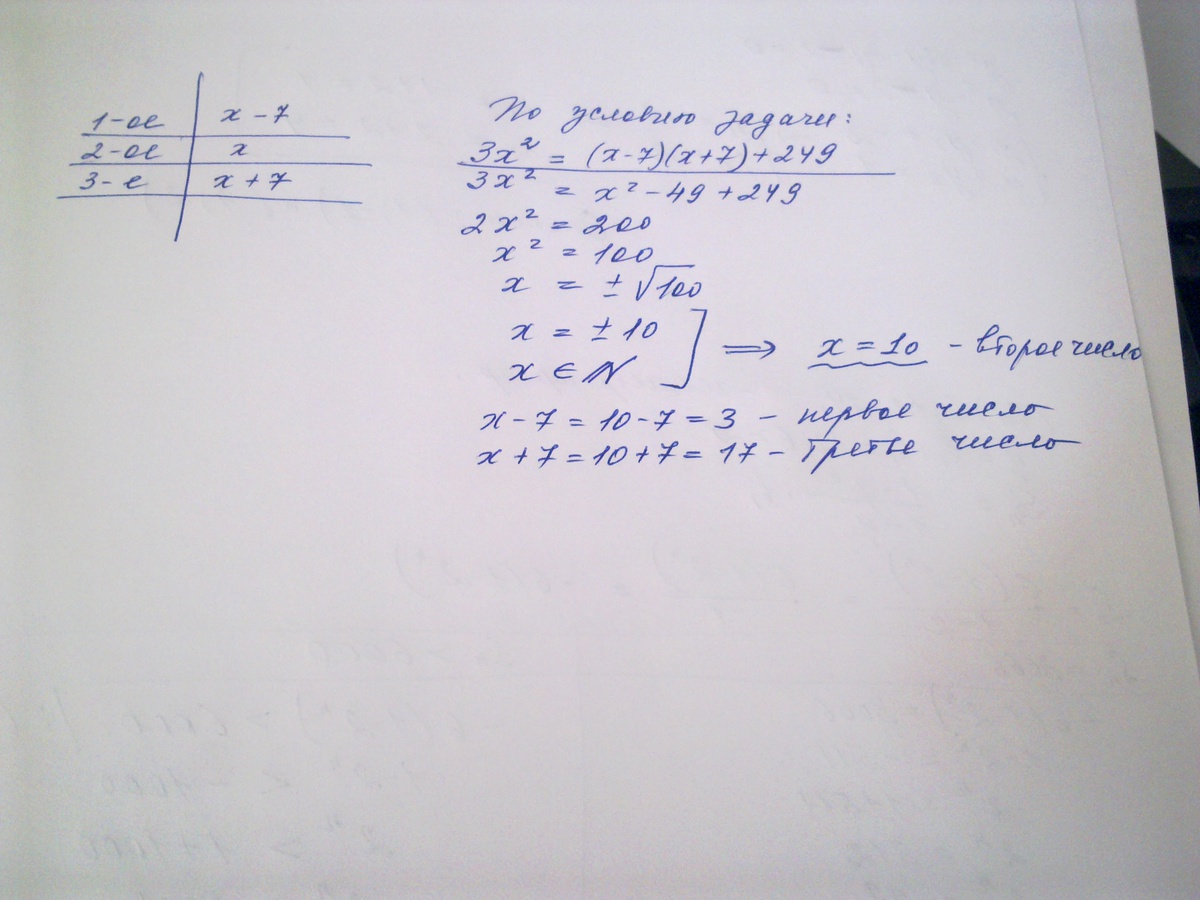 1-ое x - 7
2-ое x
3-е x + 7
По условию задачи:
3x² = (x-7)(x+7)+249
3x² = x² - 49 + 249
2x² = 200
x² = 100
x = ± √100
x = ± 10
x ∈ N
⟹ x = 10 - второе число
x - 7 = 10 - 7 = 3 - первое число
x + 7 = 10 + 7 = 17 - третье число